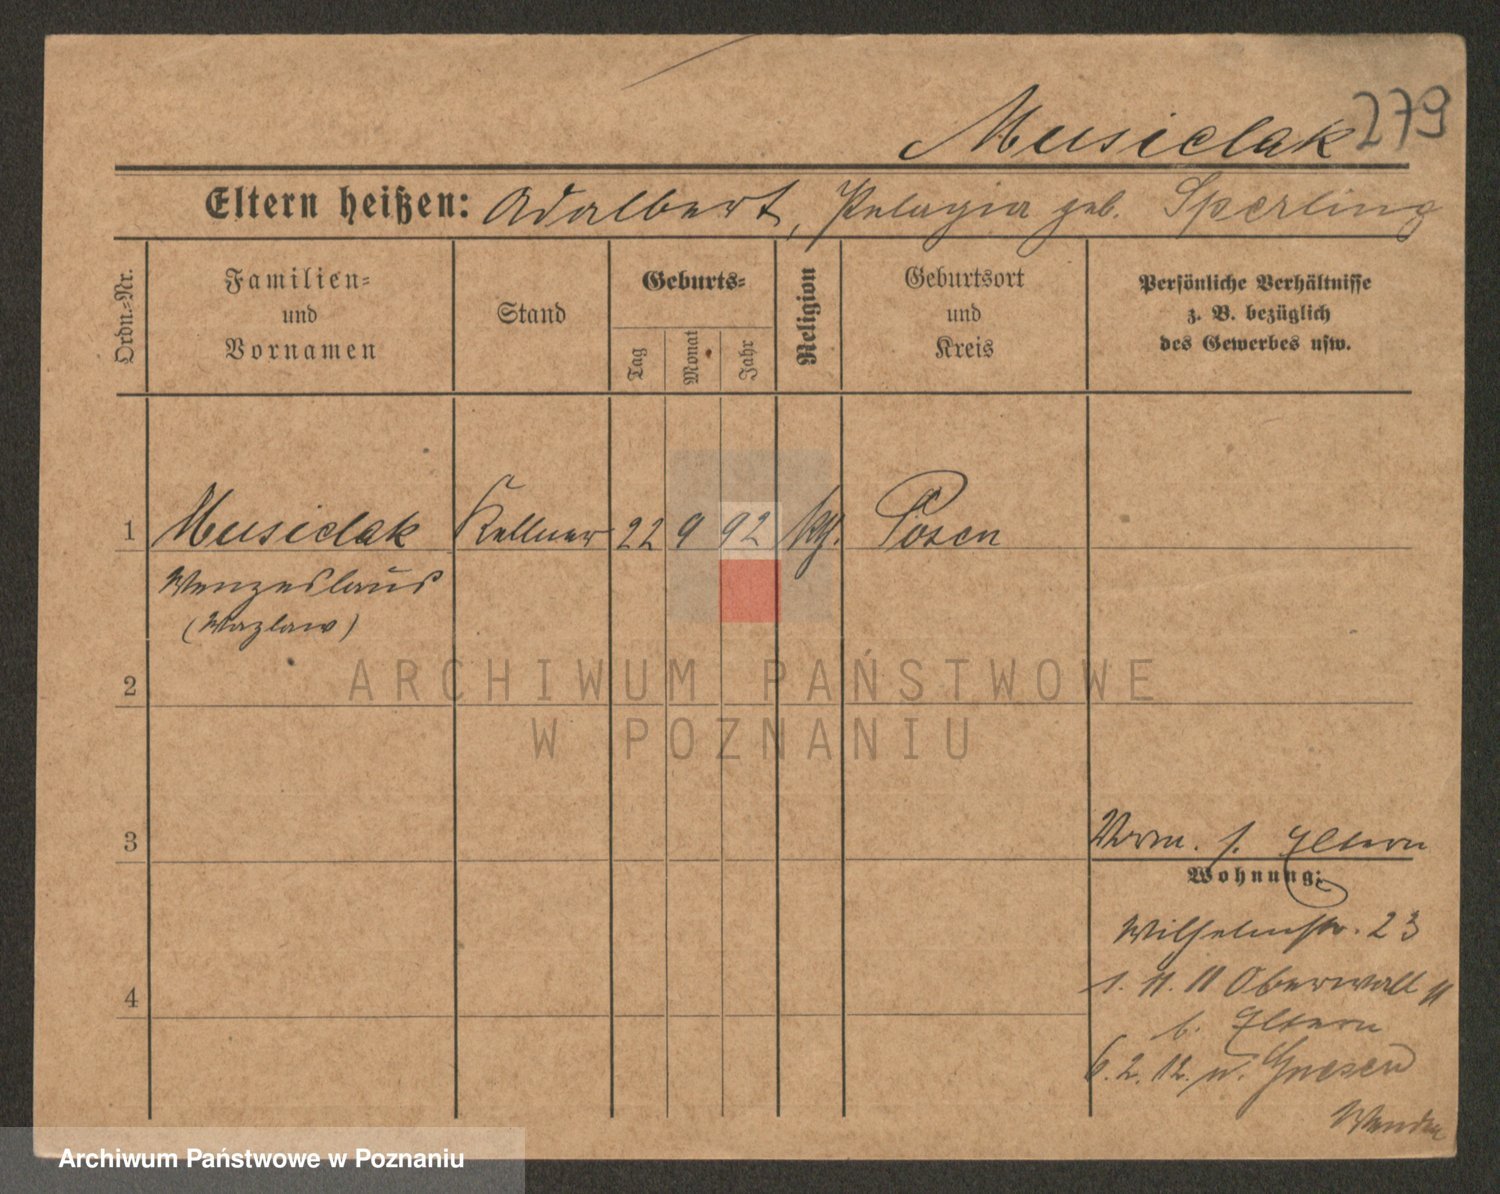 Musielak 279
Eltern heißen: Adalbert, Pelagia geb. Sperling
Ordn.-Nr.
Familien-
und
Vornamen
Stand
Geburts-
Tag
Monat
Jahr
Religion
Geburtsort
und
Kreis
Persönliche Verhältnisse
z. B. bezüglich
des Gewerbes usw.
1 Musielak Kellner 22 9 92 kg. Posen
Wenzeslaus
(Wazlaw)
2
3
Vorm. s. Eltern
Wohnung:
Wilhelmstr. 23
1. 11. 11 Oberwall 11
4
b. Eltern
6. 2. 12. n. Gnesen
Wenden
ARCHIWUM PAŃSTWOWE
W POZNANIU
Archiwum Państwowe w Poznaniu